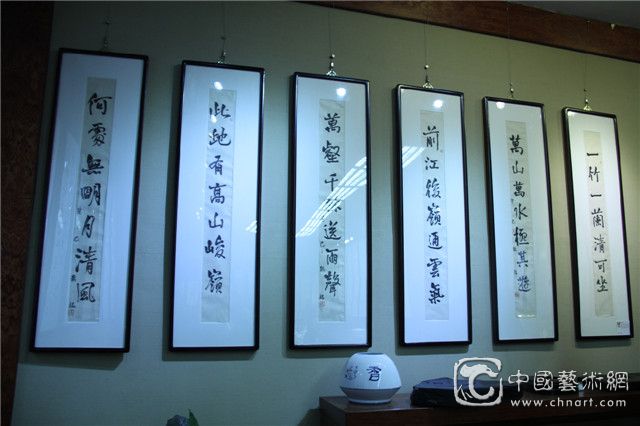 一竹一蘭清可坐
萬山萬水極其遊
前江後嶺通雲氣
萬壑千林送雨聲
此地有高山峻嶺
何處無明月清風
香
中國藝術網
www.chnart.com